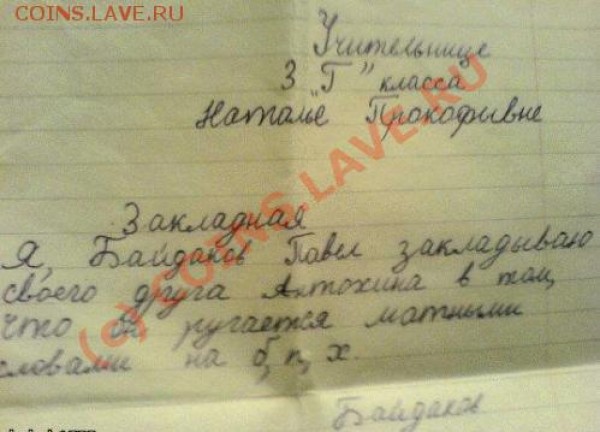 COINS.LAVE.RU
Учительнице
3 "Г" класса
Наталье Прокофивне
Закладная
Я, Байдаков Павел закладываю
своего друга Антохина в том,
что он ругается матными
словами на б, п, х.
Байдаков
(c) COINS.LAVE.RU